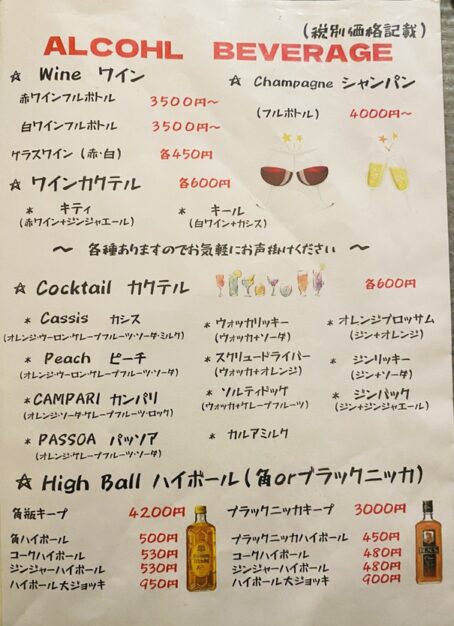 (税別価格記載)
ALCOHL BEVERAGE
☆ Wine ワイン
赤ワインフルボトル 3500円～
白ワインフルボトル 3500円～
グラスワイン (赤・白) 各450円
☆ Champagne シャンパン
(フルボトル) 4000円～
☆ ワインカクテル 各600円
* キティ
(赤ワイン+ジンジャエール)
* キール
(白ワイン+カシス)
～ 各種ありますのでお気軽にお声掛けください ～
☆ Cocktail カクテル 各600円
* Cassis カシス
(オレンジ・ウーロン・グレープフルーツ・ソーダ・ミルク)
* Peach ピーチ
(オレンジ・ウーロン・グレープフルーツ・ソーダ)
* CAMPARI カンパリ
(オレンジ・ソーダ・グレープフルーツ・ロック)
* PASSOA パッソア
(オレンジ・グレープフルーツ・ソーダ)
* ウォッカリッキー
(ウォッカ+ソーダ)
* スクリュードライバー
(ウォッカ+オレンジ)
* ソルティドッグ
(ウォッカ+グレープフルーツ)
* カルアミルク
* オレンジブロッサム
(ジン+オレンジ)
* ジンリッキー
(ジン+ソーダ)
* ジンバック
(ジン+ジンジャエール)
☆ High Ball ハイボール (角orブラックニッカ)
角瓶キープ 4200円
角ハイボール 500円
コークハイボール 530円
ジンジャーハイボール 530円
ハイボール大ジョッキ 950円
ブラックニッカキープ 3000円
ブラックニッカハイボール 450円
コークハイボール 480円
ジンジャーハイボール 480円
ハイボール大ジョッキ 900円